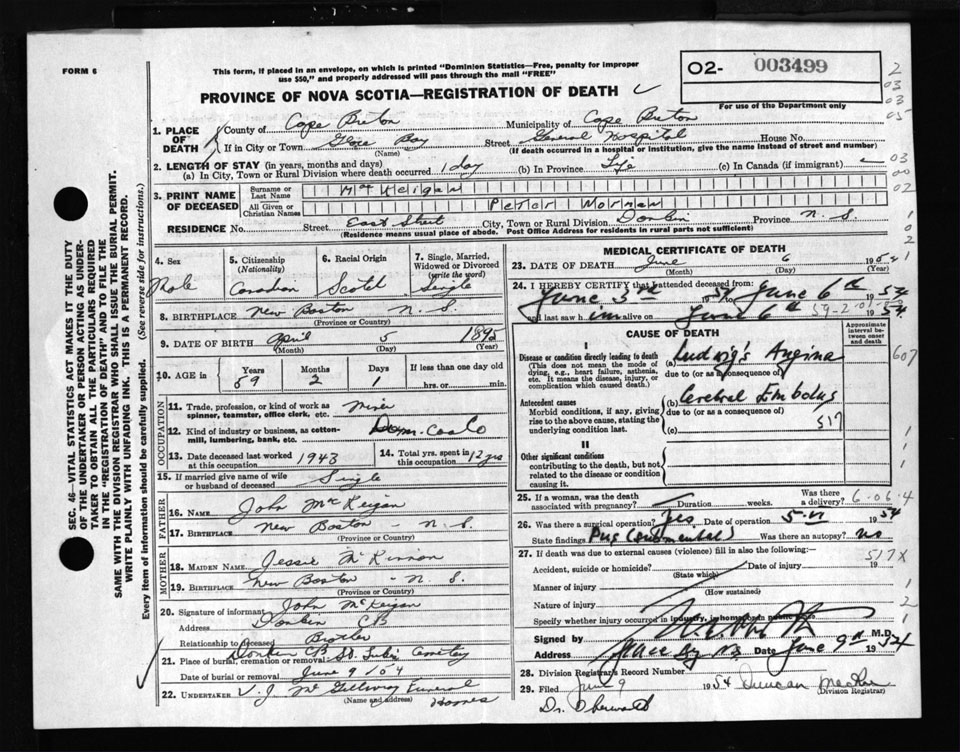 FORM 6
This form, if placed in an envelope, on which is printed "Dominion Statistics—Free, penalty for improper
use $50," and properly addressed will pass through the mail "FREE"
PROVINCE OF NOVA SCOTIA—REGISTRATION OF DEATH
O2- 003499
For use of the Department only
2
03
03
05
1. PLACE OF DEATH
County of Cape Breton Municipality of Cape Breton
If in City or Town Glace Bay (Name) Street General Hospital House No.
(If death occurred in a hospital or institution, give the name instead of street and number)
2. LENGTH OF STAY (in years, months and days)
(a) In City, Town or Rural Division where death occurred 1 day (b) In Province Life (c) In Canada (if immigrant)
03
00
02
3. PRINT NAME OF DECEASED
Surname or Last Name McKeigan
All Given or Christian Names Peter Norman
RESIDENCE No. Street East Street City, Town or Rural Division Donkin Province N. S.
(Residence means usual place of abode. Post Office Address for residents in rural parts not sufficient)
4. Sex Male
5. Citizenship (Nationality) Canadian
6. Racial Origin Scotch
7. Single, Married, Widowed or Divorced (write the word) Single
8. BIRTHPLACE New Boston N. S.
(Province or Country)
9. DATE OF BIRTH April 5 1895
(Month) (Day) (Year)
10. AGE in Years 59 Months 2 Days 1 If less than one day old hrs. or min.
OCCUPATION
11. Trade, profession, or kind of work as spinner, teamster, office clerk, etc. Miner
12. Kind of industry or business, as cotton-mill, lumbering, bank, etc. Dom. Coal Co
13. Date deceased last worked at this occupation 1943
14. Total yrs. spent in this occupation 12 yrs
15. If married give name of wife or husband of deceased Single
FATHER
16. NAME John McKeigan
17. BIRTHPLACE New Boston - N. S.
(Province or Country)
MOTHER
18. MAIDEN NAME Jessie McKinnon
19. BIRTHPLACE New Boston - N. S.
(Province or Country)
20. Signature of informant John McKeigan
Address Donkin CB
Relationship to deceased Brother
Donkin CB St. Lukes Cemetery
21. Place of burial, cremation or removal
Date of burial or removal June 9 / 54
22. UNDERTAKER V. J. McGillivray Funeral Homes
(Name and address)
MEDICAL CERTIFICATE OF DEATH
23. DATE OF DEATH June 6 1954
(Month) (Day) (Year)
24. I HEREBY CERTIFY that I attended deceased from:
June 5th 1954 to June 6th 1954
and last saw him alive on June 6th 1954
CAUSE OF DEATH
Approximate interval between onset and death
I
Disease or condition directly leading to death
(This does not mean the mode of dying, e.g., heart failure, asthenia, etc. It means the disease, injury, or complication which caused death.)
(a) Ludwig's Angina
due to (or as a consequence of)
607
Antecedent causes
Morbid conditions, if any, giving rise to the above cause, stating the underlying condition last.
(b) Cerebral Embolus
due to (or as a consequence of)
(c)
517
II
Other significant conditions
contributing to the death, but not related to the disease or condition causing it.
25. If a woman, was the death associated with pregnancy? Duration weeks. Was there a delivery?
6-06-4
26. Was there a surgical operation? Yes Date of operation 5-VI 1954
State findings Pus (submental) Was there an autopsy? no
27. If death was due to external causes (violence) fill in also the following:—
517X
Accident, suicide or homicide? Date of injury 19
(State which)
Manner of injury
(How sustained)
Nature of injury
Specify whether injury occurred in industry, in home or in public place
Signed by M.D.
Address Glace Bay NS Date June 9th 1954
28. Division Registrar's Record Number
29. Filed June 9 1954 Duncan
(Division Registrar)
SEC. 46—VITAL STATISTICS ACT MAKES IT THE DUTY
OF THE UNDERTAKER OR PERSON ACTING AS UNDER-
TAKER TO OBTAIN ALL THE PARTICULARS REQUIRED
IN THE "REGISTRATION OF DEATH" AND TO FILE THE
SAME WITH THE DIVISION REGISTRAR WHO SHALL ISSUE THE BURIAL PERMIT.
WRITE PLAINLY WITH UNFADING INK. THIS IS A PERMANENT RECORD.
Every item of information should be carefully supplied. (See reverse side for instructions.)